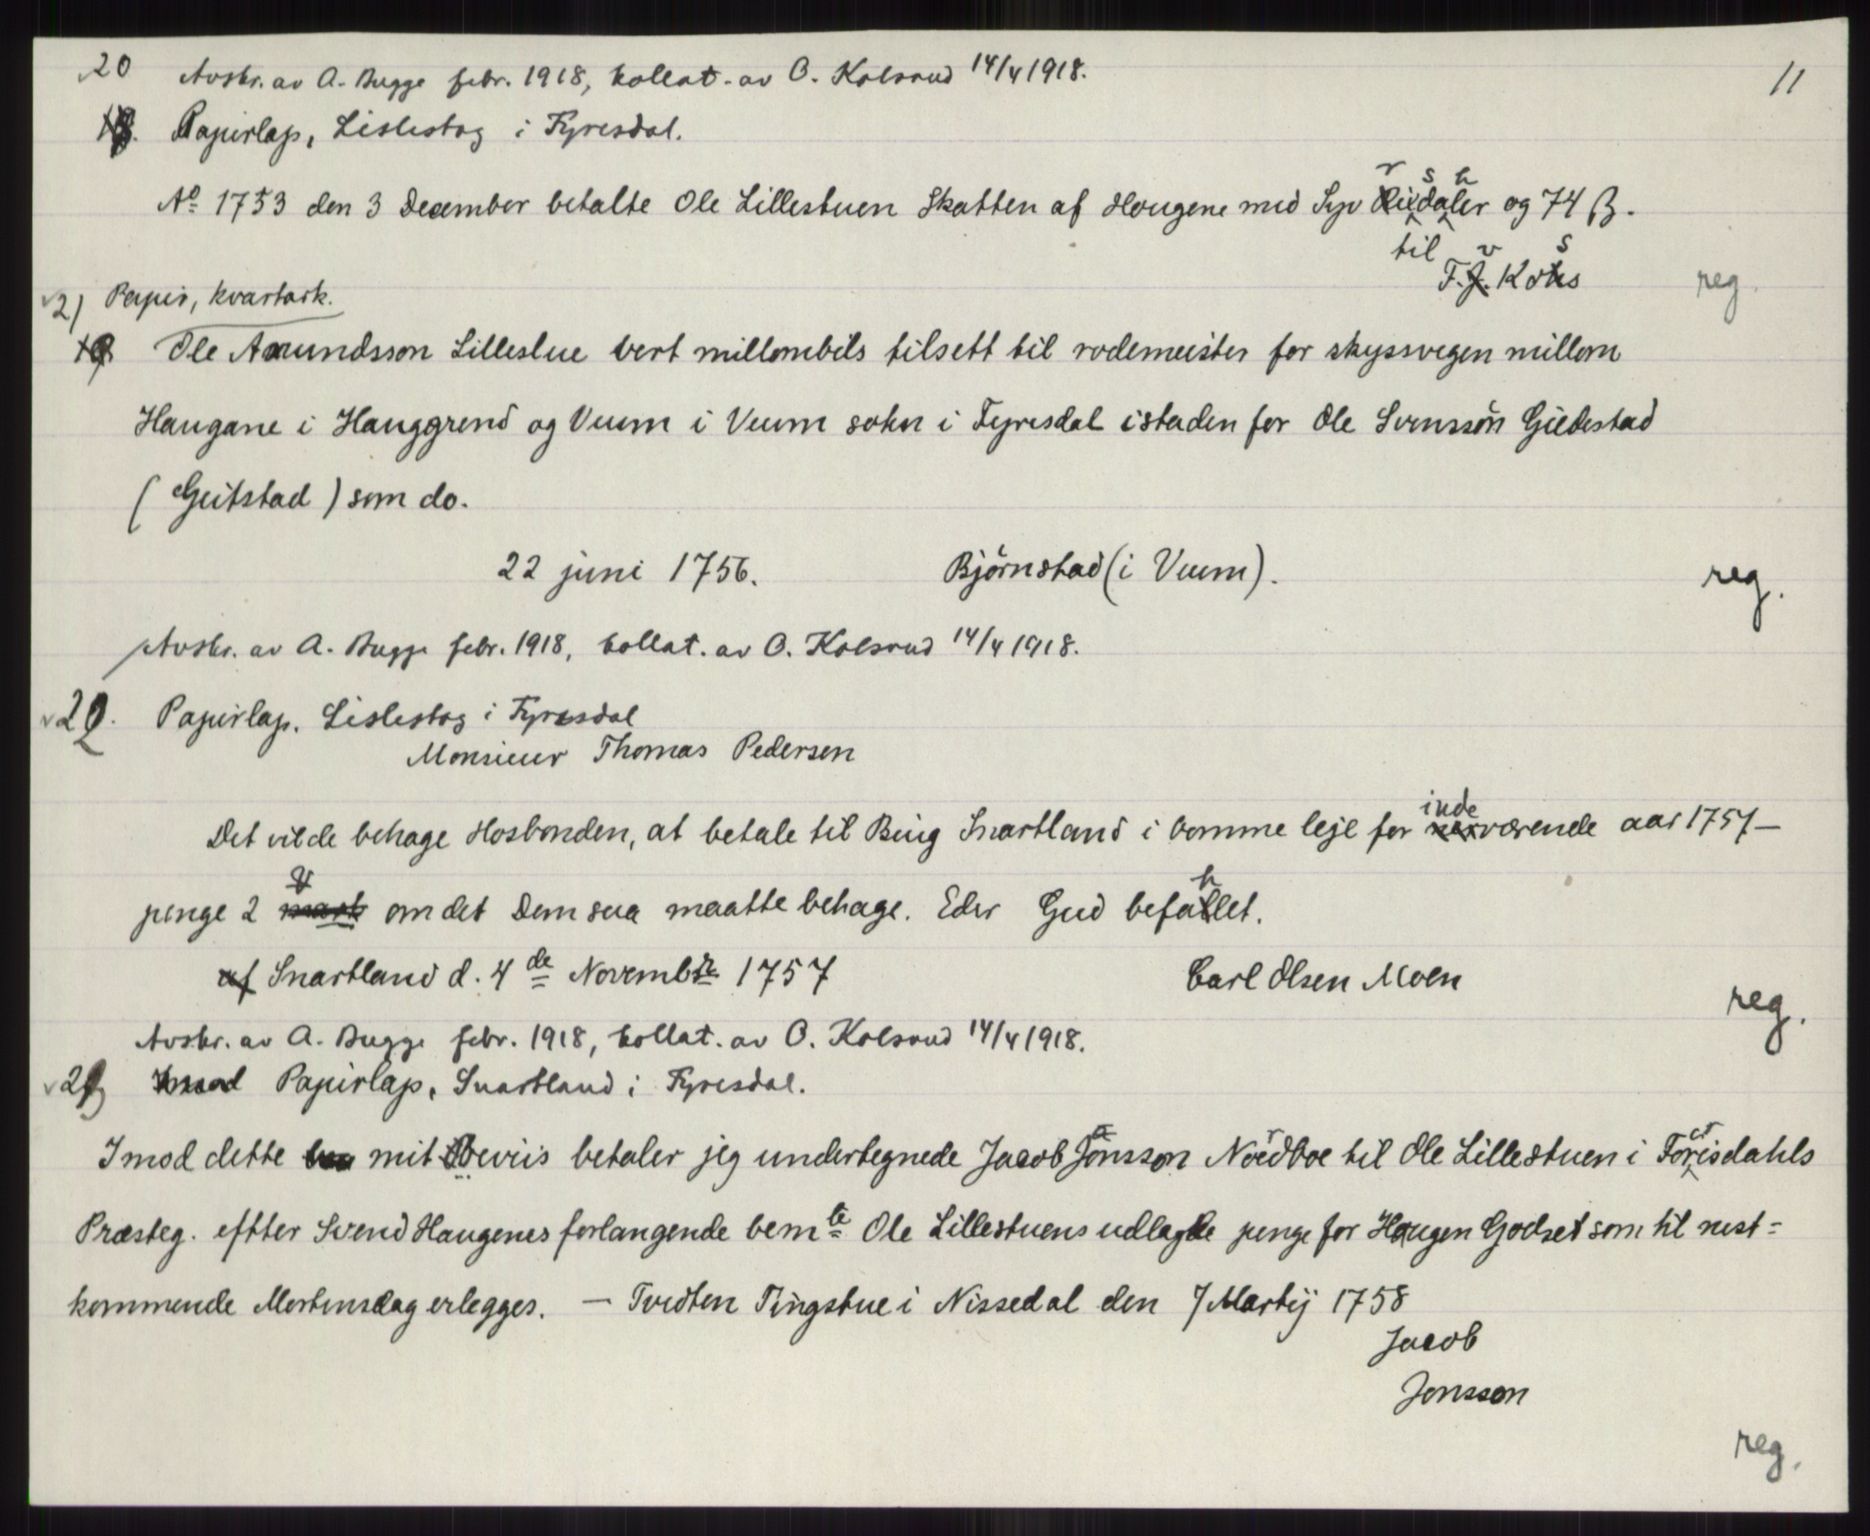 20 Avskr. av A. Bugge febr. 1918, kollat. av O. Kolsrud 14/4 1918. 11
Papirlap, Lislestog i Fyresdal.
Ao 1753 den 3 December betalte Ole Lillestuen Skatten af Hougene med Syv Rixdaler og 74 ß.
til
F. J. Kohs reg.
21) Papir, kvartark.
19 Ole Amundsson Lillestue vert millombils tilsett til rodemeister for skyssvegen millom
Haugane i Hauggrend og Veum i Veum sokn i Fyresdal istaden for Ole Svensson Giedestad
(Geitstad) som do.
22 juni 1756. Bjørnstad (i Veum). reg.
Avskr. av A. Bugge febr. 1918, kollat. av O. Kolsrud 14/4 1918.
22. Papirlap. Lislestog i Fyresdal
Monsieur Thomas Pedersen
Det vilde behage Hosbonden, at betale til Berig Snartland i komme leje for indeværende aar 1757—
penge 2 mark om det Dem saa maatte behage. Eder Gud befahlet.
af Snartland d. 4de Novembr 1757 Carl Olsen Moen
reg.
Avskr. av A. Bugge febr. 1918, kollat. av O. Kolsrud 14/4 1918.
23 Imod Papirlap, Snartland i Fyresdal.
Imod dette mit Beviis betaler jeg undertegnede Jacob Jonsson Nordboe til Ole Lillestuen i Forisdahls
Præsteg. effter Svend Haugenes forlangende bemte Ole Lillestuens udlagde penge for Haugen Godset som til nest=
kommende Mortensdag erlegges. — Tvedten Tingstue i Nissedal den 7 Martij 1758
Jacob
Jonsson
reg.